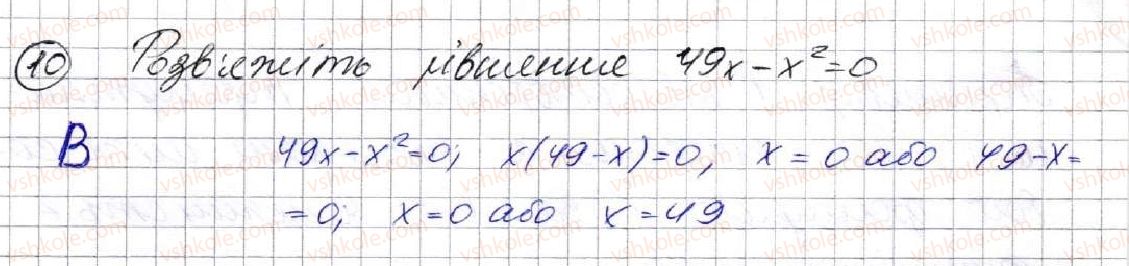 10 Розв'яжіть рівняння 49x - x² = 0
В 49x - x² = 0; x(49 - x) = 0, x = 0 або 49 - x =
= 0; x = 0 або x = 49